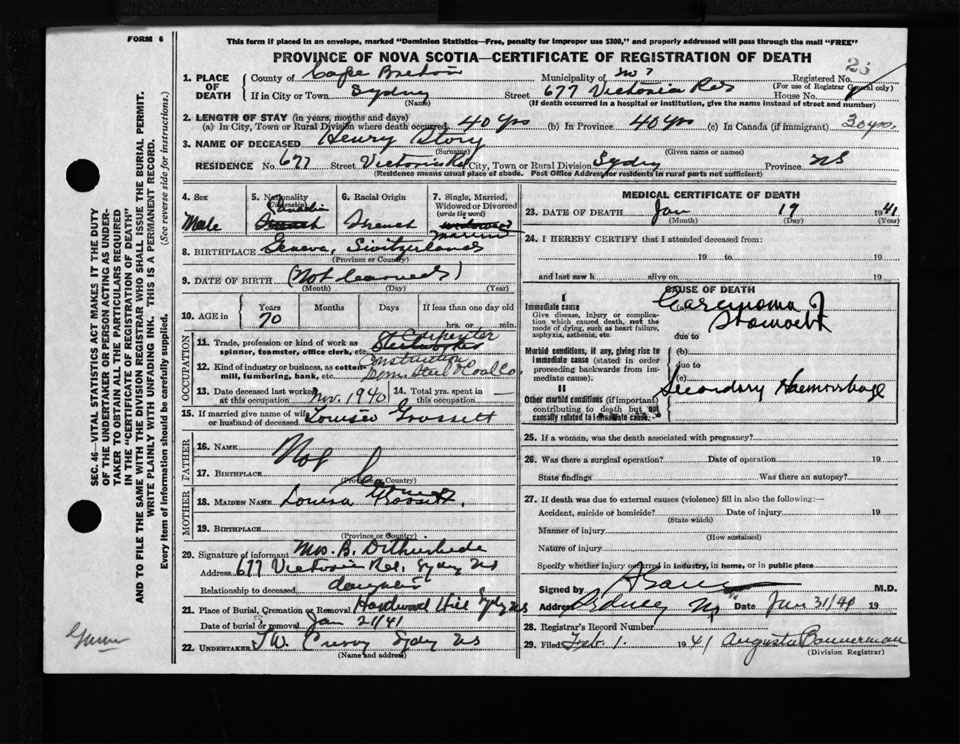 FORM 6
This form if placed in an envelope, marked "Dominion Statistics—Free, penalty for improper use $300," and properly addressed will pass through the mail "FREE"
PROVINCE OF NOVA SCOTIA—CERTIFICATE OF REGISTRATION OF DEATH
SEC. 46—VITAL STATISTICS ACT MAKES IT THE DUTY
OF THE UNDERTAKER OR PERSON ACTING AS UNDER-
TAKER TO OBTAIN ALL THE PARTICULARS REQUIRED
IN THE "CERTIFICATE OF REGISTRATION OF DEATH"
AND TO FILE THE SAME WITH THE DIVISION REGISTRAR WHO SHALL ISSUE THE BURIAL PERMIT.
WRITE PLAINLY WITH UNFADING INK. THIS IS A PERMANENT RECORD.
Every item of information should be carefully supplied. (See reverse side for instructions.)
1. PLACE OF DEATH County of Cape Breton Municipality of No 7 Registered No. 25
(For use of Registrar General only)
If in City or Town Sydney Street 677 Victoria Rd House No.
(Name) (If death occurred in a hospital or institution, give the name instead of street and number)
2. LENGTH OF STAY (in years, months and days)
(a) In City, Town or Rural Division where death occurred 40 yrs (b) In Province 40 yrs (c) In Canada (if immigrant) 30 yrs.
3. NAME OF DECEASED Henry Story
(Surname) (Given name or names)
RESIDENCE No. 677 Street Victoria Rd City, Town or Rural Division Sydney Province NS
(Residence means usual place of abode. Post Office Address for residents in rural parts not sufficient)
4. Sex 5. Nationality (Citizenship) 6. Racial Origin 7. Single, Married, Widowed or Divorced (write the word)
Male French French widowed
8. BIRTHPLACE Geneva, Switzerland
(Province or Country)
9. DATE OF BIRTH (Not learned)
(Month) (Day) (Year)
10. AGE in Years Months Days If less than one day old
70 hrs. or min.
OCCUPATION
11. Trade, profession or kind of work as spinner, teamster, office clerk, etc. Carpenter
12. Kind of industry or business, as cotton mill, lumbering, bank, etc. Construction
Dom. Steel & Coal Co.
13. Date deceased last worked at this occupation Nov. 1940 14. Total yrs. spent in this occupation —
15. If married give name of wife or husband of deceased Louise Grossett
FATHER
16. NAME Not
17. BIRTHPLACE
(Province or Country)
MOTHER
18. MAIDEN NAME Louisa
19. BIRTHPLACE
(Province or Country)
20. Signature of informant Mrs. B.
Address 677 Victoria Rd, Sydney NS
Relationship to deceased daughter
21. Place of Burial, Cremation or Removal Hardwood Hill Sydney NS
Date of burial or removal Jan 21/41
22. UNDERTAKER T.W. Curry Sydney NS
(Name and address)
MEDICAL CERTIFICATE OF DEATH
23. DATE OF DEATH Jan 19 1941
(Month) (Day) (Year)
24. I HEREBY CERTIFY that I attended deceased from:
19 to 19
and last saw h alive on 19
CAUSE OF DEATH
I
Immediate cause
Give disease, injury or complication which caused death, not the mode of dying, such as heart failure, asphyxia, asthenia, etc.
Carcinoma of Stomach
due to
Morbid conditions, if any, giving rise to immediate cause (stated in order proceeding backwards from immediate cause).
(b)
due to
(c)
II
Other morbid conditions (if important) contributing to death but not causally related to immediate cause.
Secondary Haemorrhage
25. If a woman, was the death associated with pregnancy?
26. Was there a surgical operation? Date of operation 19
State findings Was there an autopsy?
27. If death was due to external causes (violence) fill in also the following:—
Accident, suicide or homicide? Date of injury 19
(State which)
Manner of injury
(How sustained)
Nature of injury
Specify whether injury occurred in industry, in home, or in public place
Signed by M.D.
Address Sydney NS Date Jan 31/41 19
28. Registrar's Record Number
29. Filed Feb. 1. 1941 Augusta Bannerman
(Division Registrar)